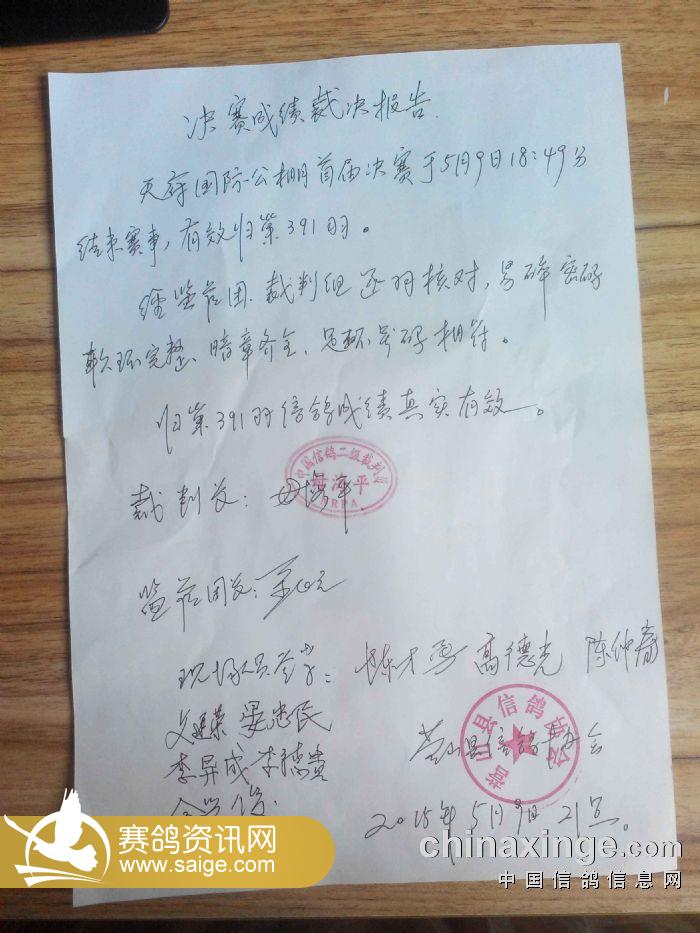 决赛成绩裁决报告
天府国际公棚首届决赛于5月9日18:49分
结束赛事，有效归巢391羽。
经监督团、裁判组逐羽核对，号码密码
软环完整、暗章齐全、足环号码相符。
归巢391羽信鸽成绩真实有效。
裁判长：母海平
中国信鸽二级裁判员
母海平
CRPA
监督团长：
现场人员签字：陈才勇 高德光 陈仲春
晏忠民
李昇成 李德贵
营山县信鸽协会
营山县信鸽协会
2015年5月9日21点。
赛鸽资讯网
www.saige.com
chinaxinge.com
中国信鸽信息网